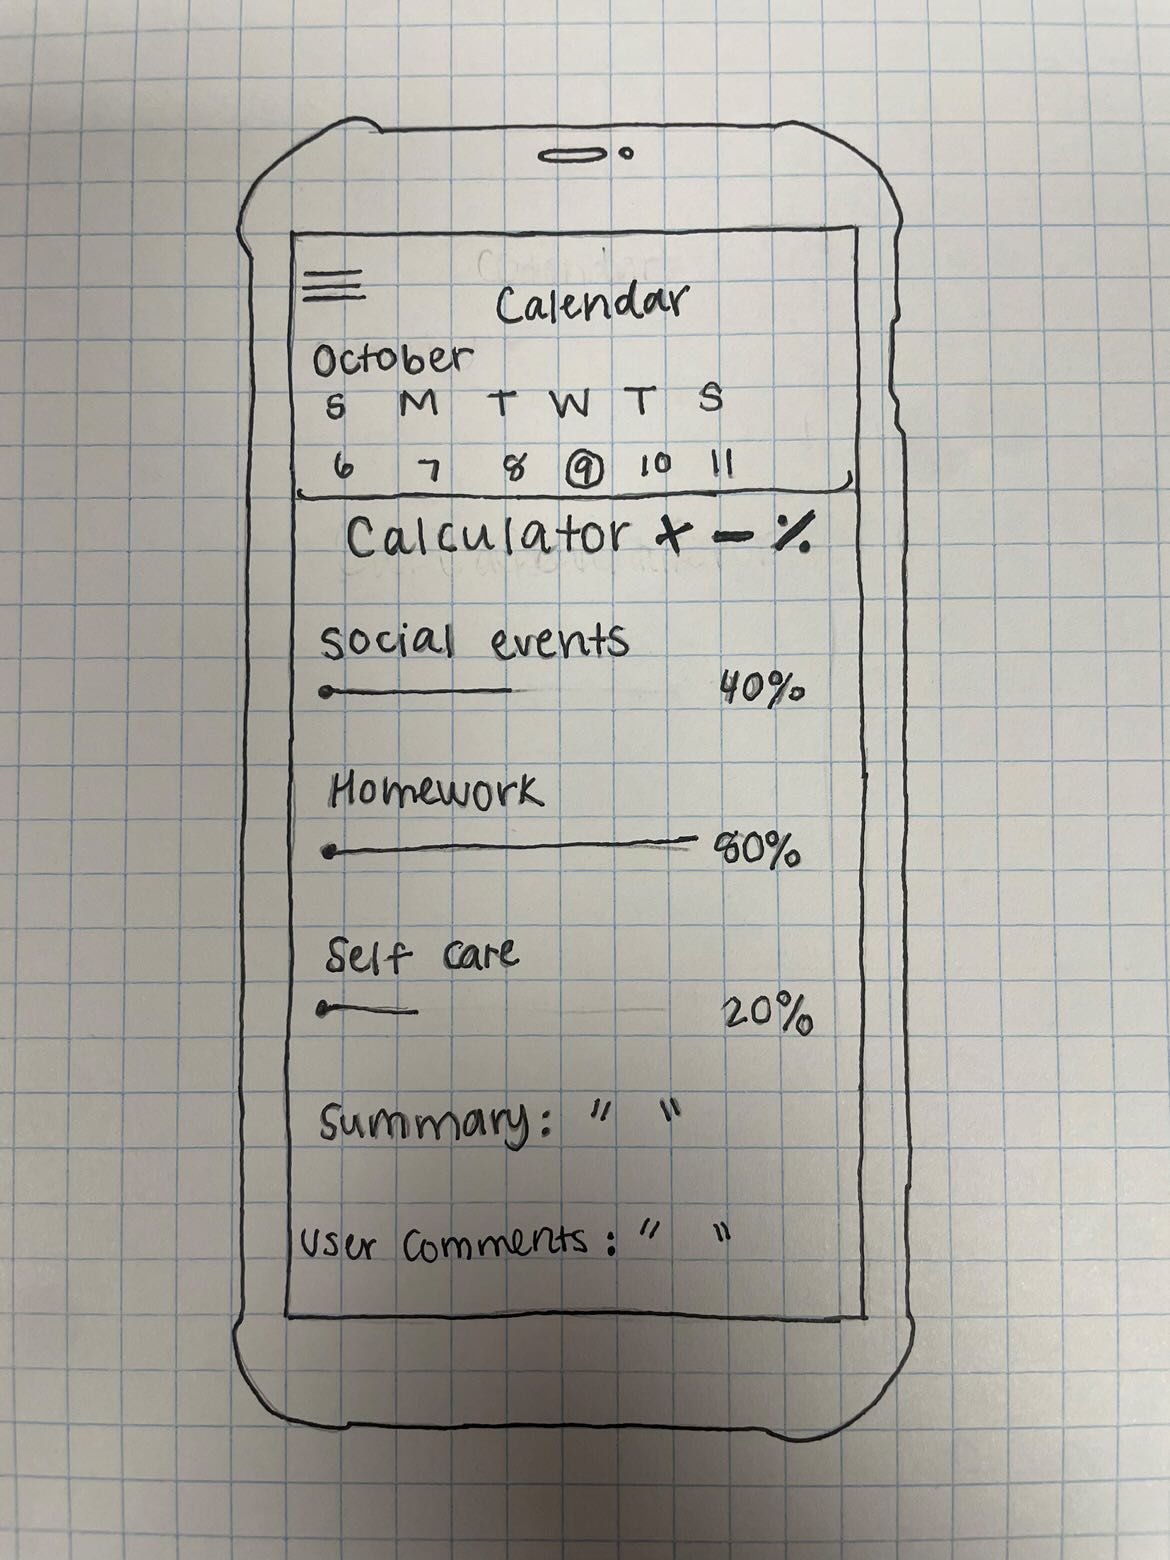 Calendar
October
S M T W T S
6 7 8 9 10 11
Calculator + - %
Social events
40%
Homework
80%
Self care
20%
Summary: " "
User comments: " "